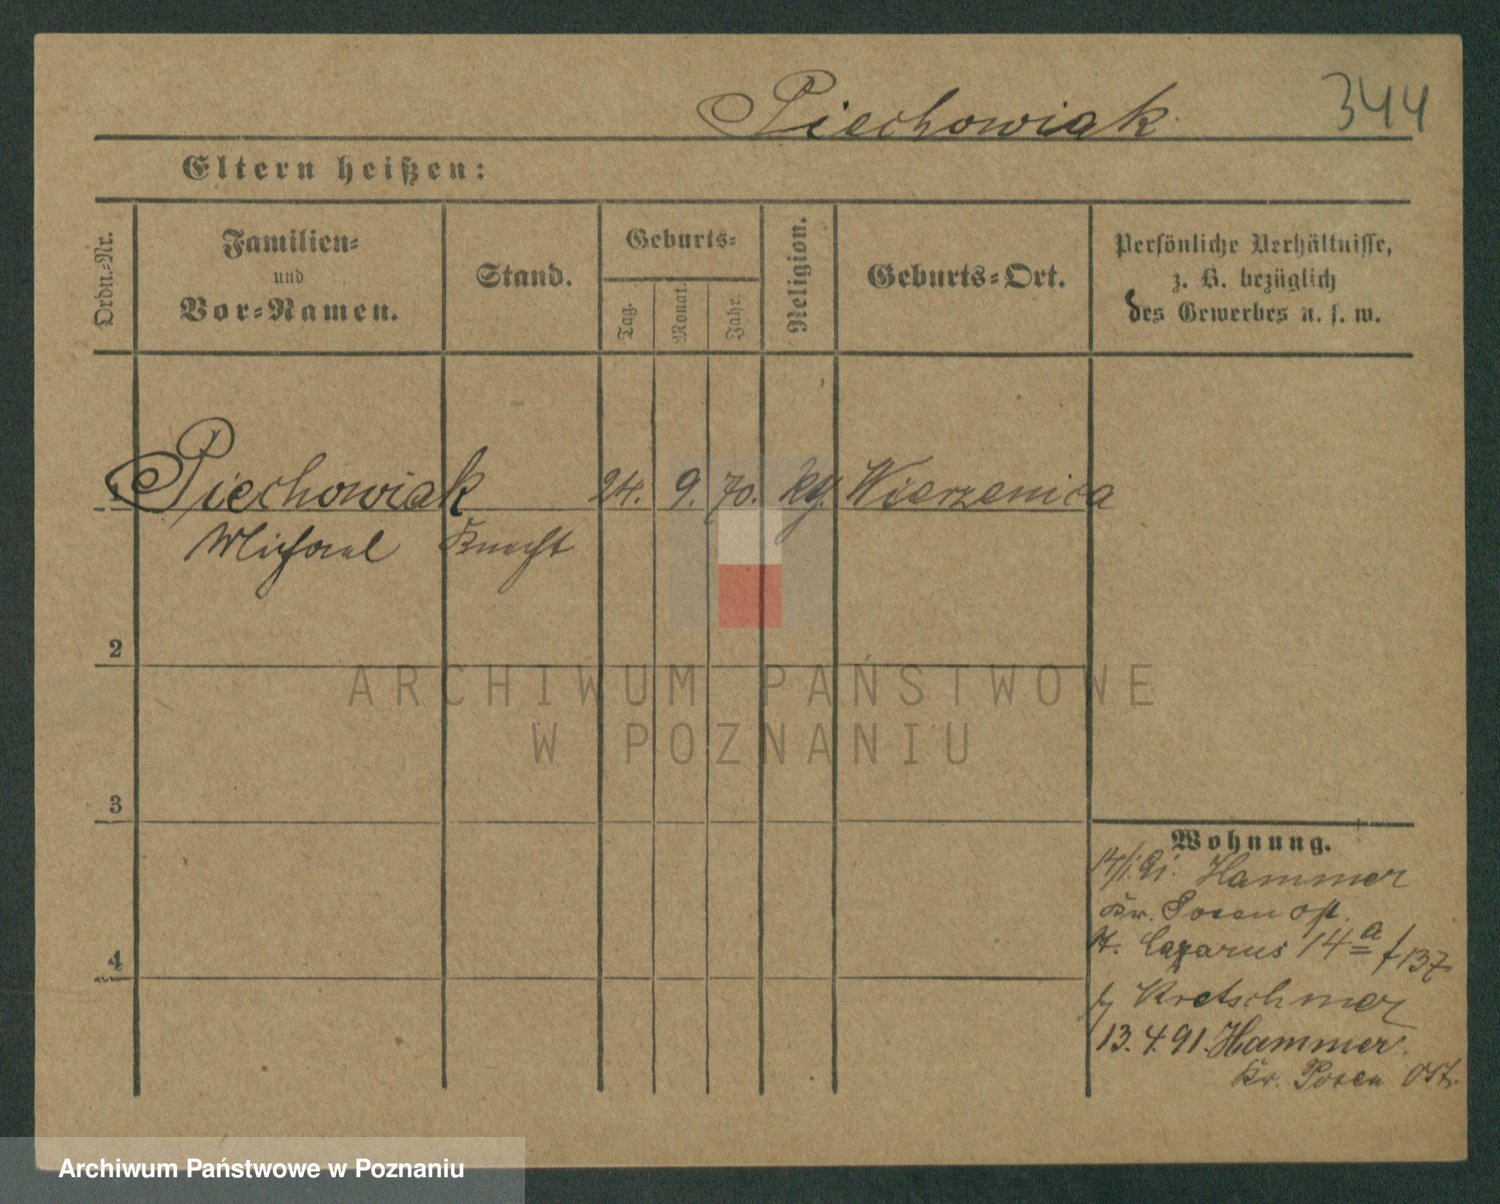 Piechowiak 344
Eltern heißen:
Ordn.-Nr.
Familien-
und
Vor-Namen.
Stand.
Geburts-
Tag.
Monat.
Jahr.
Religion.
Geburts-Ort.
Persönliche Verhältnisse,
z. B. bezüglich
des Gewerbes u. s. w.
1 Piechowiak 24. 9. 70. kg. Wierzenica
Michael Knecht
2
3
4
Wohnung.
14/1.91. Hammer
Kr. Posen Ost.
St. Lazarus 14a f 137
b/ Kretschmer
13.4.91. Hammer.
Kr. Posen Ost.
ARCHIWUM PAŃSTWOWE
W POZNANIU
Archiwum Państwowe w Poznaniu